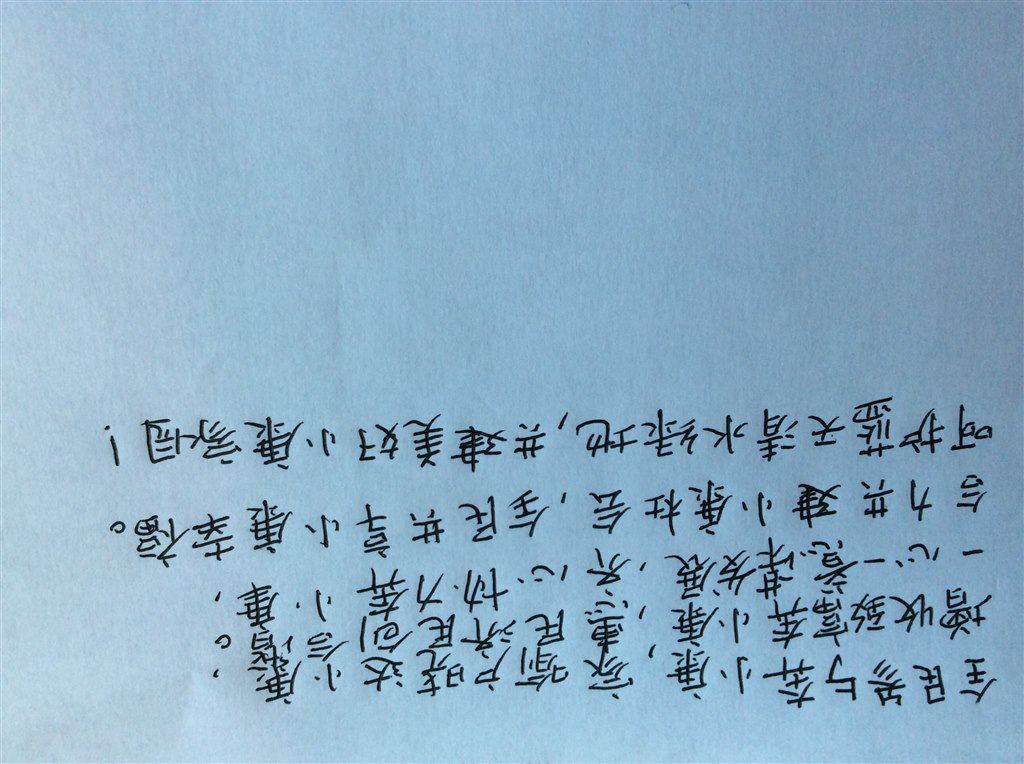 全民参与奔小康,家喻户晓达小康,
增收致富奔小康,惠民济民创合谐。
一心一意谋发展,齐心协力奔小康,
合力共建小康社会,全民共享小康幸福。
呵护蓝天清水绿地,共建美好小康家园!